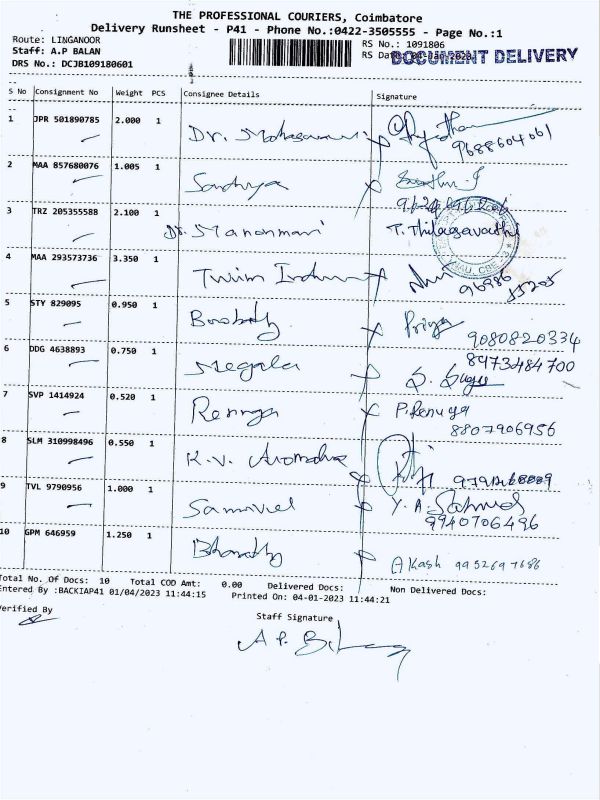 THE PROFESSIONAL COURIERS, Coimbatore
Delivery Runsheet - P41 - Phone No.:0422-3505555 - Page No.:1
Route: LINGANOOR
Staff: A.P BALAN
DRS No.: DCJB109180601
RS No.: 1091806
RS Da
DOCUMENT DELIVERY
S No Consignment No Weight PCS Consignee Details Signature
1 JPR 501890785 2.000 1 Dr.
9688604061
2 MAA 857680076 1.005 1 Sandhya
3 TRZ 205355588 2.100 1 Dr. Manonmani T. Thilagavathy
4 MAA 293573736 3.350 1
5 STY 829095 0.950 1 Priya
9080820334
6 DDG 4638893 0.750 1 Megala
8973484700
7 SVP 1414924 0.520 1 Renuga P. Renuga
8807906956
8 SLM 310998496 0.550 1 K.V.
9 TVL 9790956 1.000 1 Samuvel Y. A.
9940706496
10 GPM 646959 1.250 1 Bharathy Akash
Total No. Of Docs: 10 Total COD Amt: 0.00 Delivered Docs: Non Delivered Docs:
Entered By :BACKIAP41 01/04/2023 11:44:15 Printed On: 04-01-2023 11:44:21
Verified By
Staff Signature
A. P.